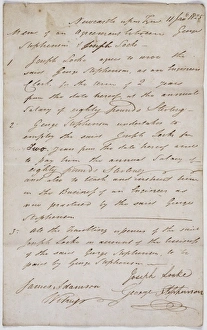 Newcastle upon Tyne 11 Jany 1825
Mem of an Agreement between George
Stephenson & Joseph Locke
1 Joseph Locke agrees to serve the
said George Stephenson as an Engineer
Clerk for the term of 2 years
from the date hereof at the annual
Salary of eighty pounds Sterling
2 George Stephenson undertakes to
employ the said Joseph Locke for
Two years from the date hereof and
to pay him the annual Salary of
eighty pounds Sterling
and also to teach and instruct him
in the Business of an Engineer as
now practised by the said George
Stephenson
3 All the travelling expences of the said
Joseph Locke on account of the business
of the said George Stephenson to be
paid by George Stephenson
Joseph Locke
James Adamson George Stephenson
Witness